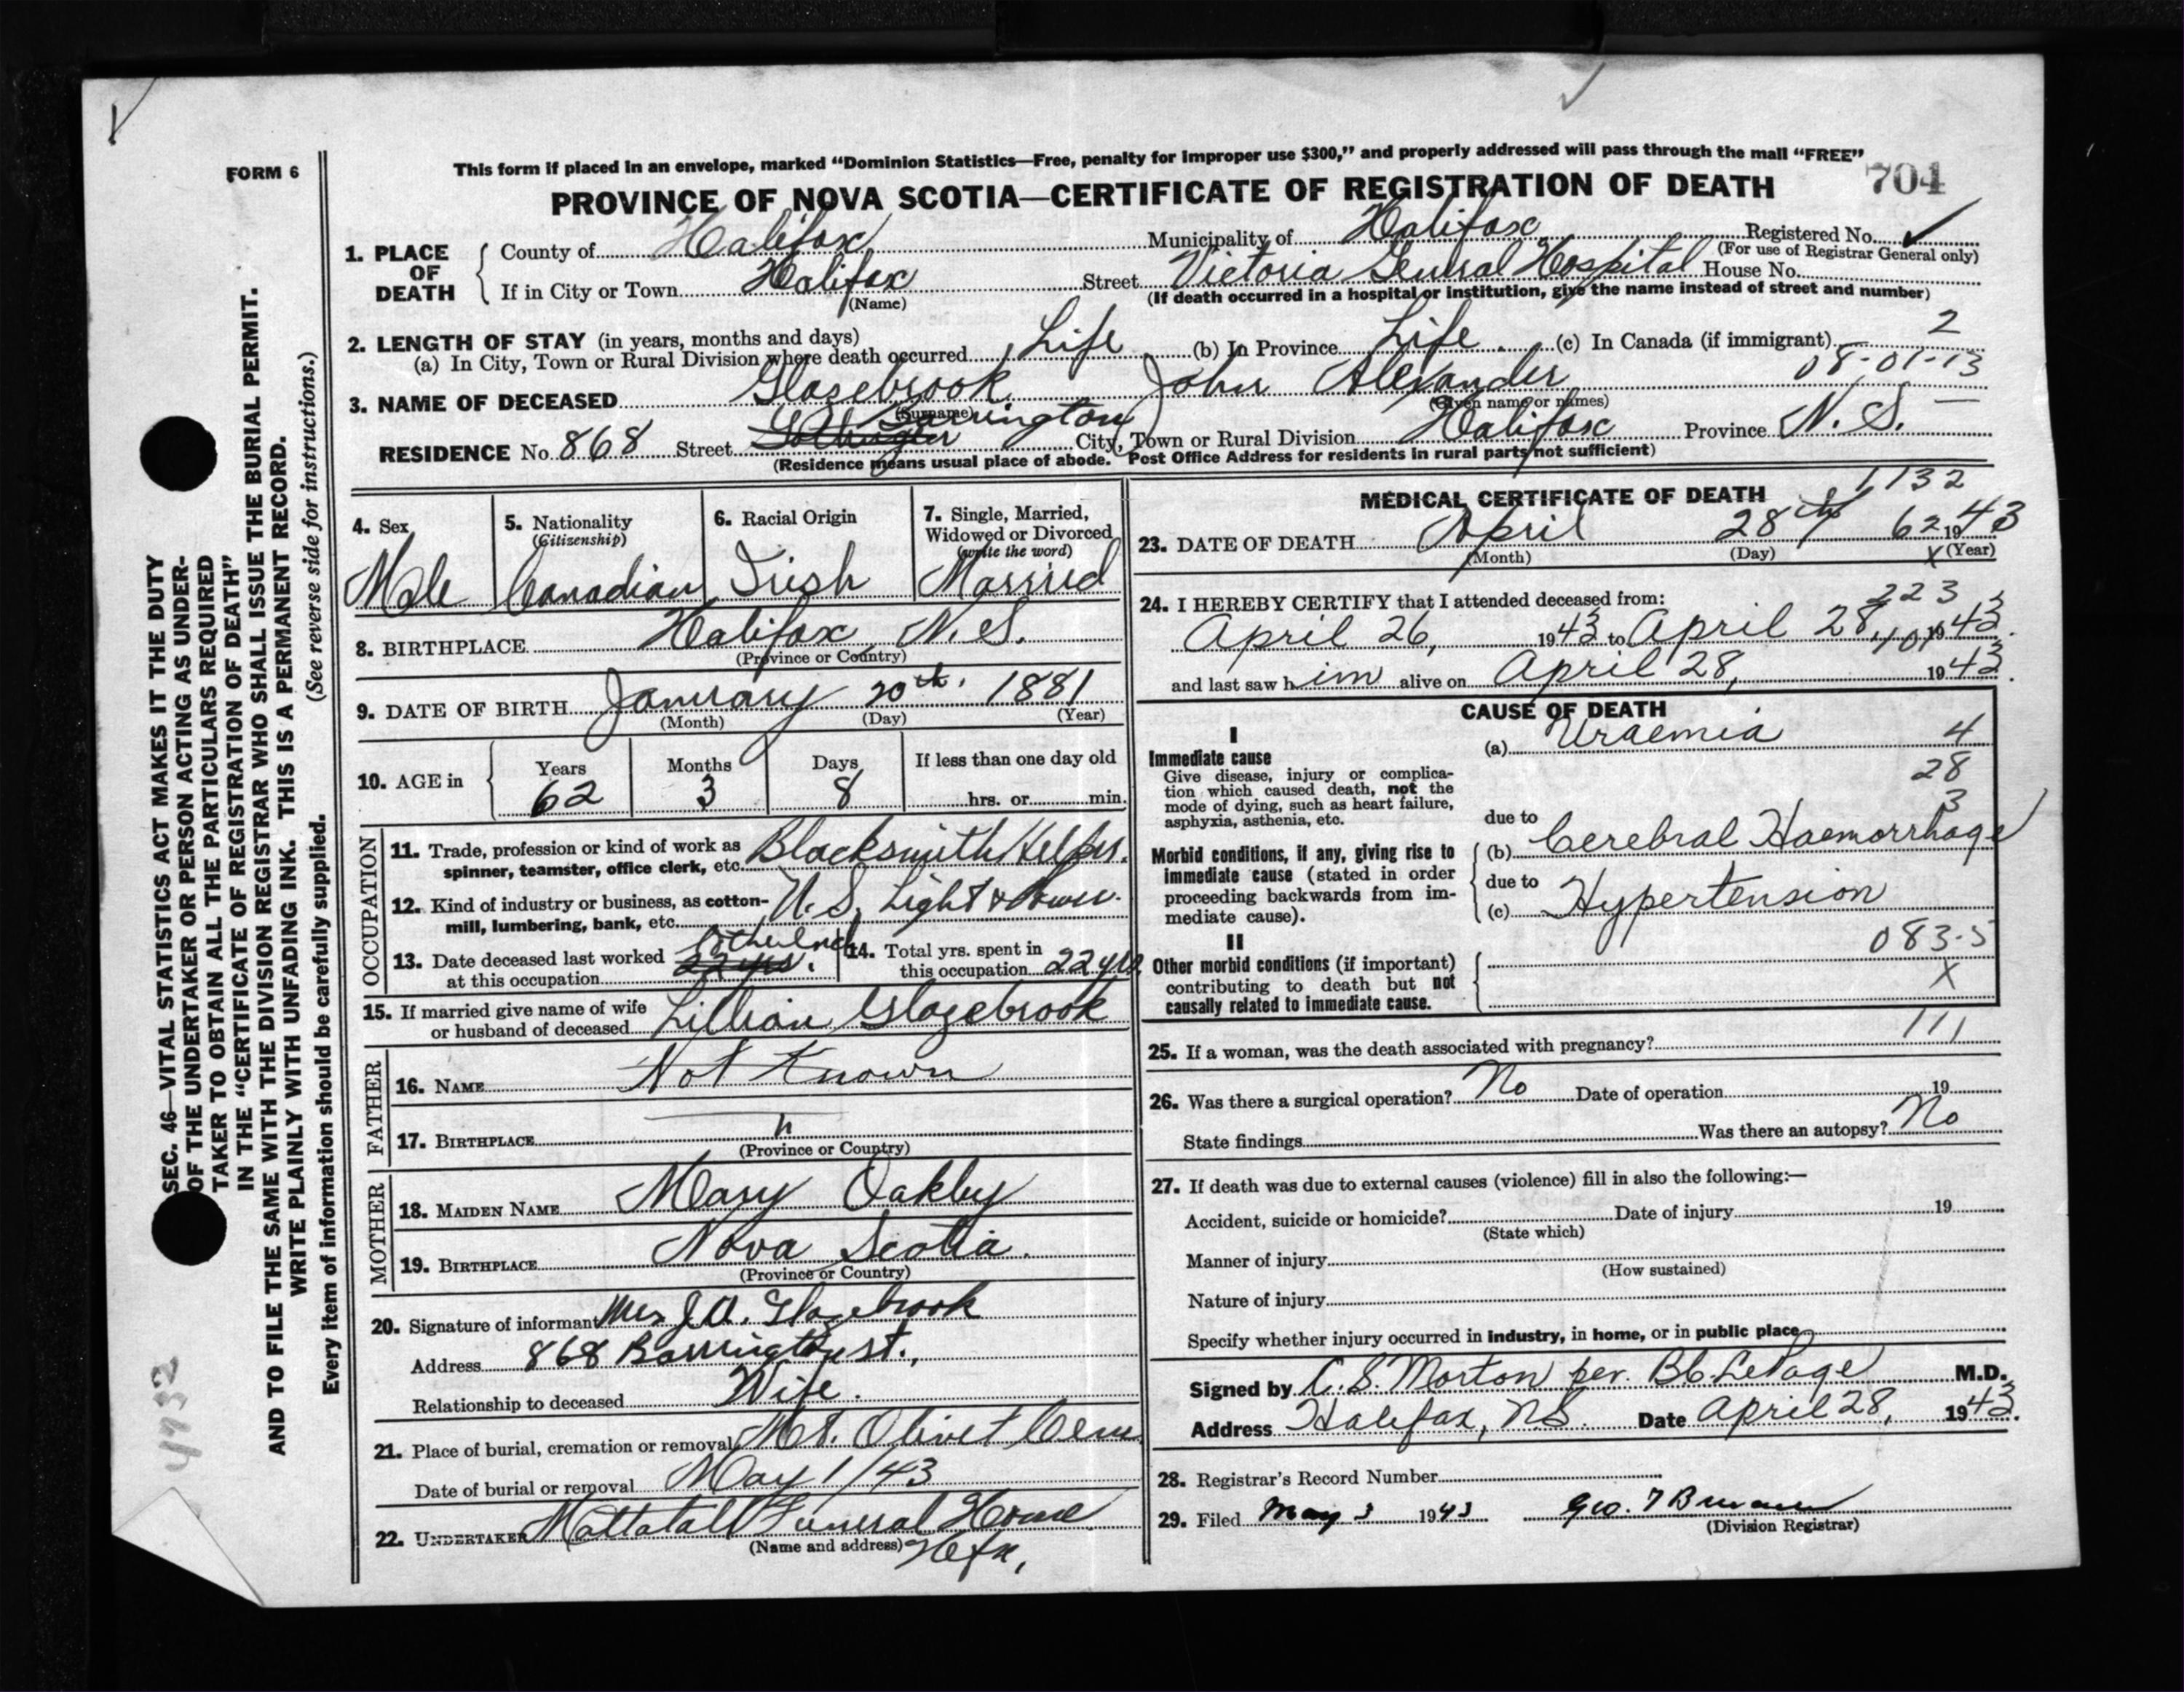 This form if placed in an envelope, marked "Dominion Statistics—Free, penalty for improper use $300," and properly addressed will pass through the mail "FREE"
FORM 6
PROVINCE OF NOVA SCOTIA—CERTIFICATE OF REGISTRATION OF DEATH 704
1. PLACE OF DEATH County of Halifax Municipality of Halifax Registered No. ✓
(For use of Registrar General only)
If in City or Town Halifax Street Victoria General Hospital House No.
(Name) (If death occurred in a hospital or institution, give the name instead of street and number)
2. LENGTH OF STAY (in years, months and days) 2
(a) In City, Town or Rural Division where death occurred Life (b) In Province Life (c) In Canada (if immigrant) —
08-01-13
3. NAME OF DECEASED Glazebrook John Alexander
(Surname) (Given name or names)
RESIDENCE No. 868 Street Barrington City, Town or Rural Division Halifax Province N. S.
(Residence means usual place of abode. Post Office Address for residents in rural parts not sufficient)
4. Sex Male
5. Nationality (Citizenship) Canadian
6. Racial Origin Irish
7. Single, Married, Widowed or Divorced (write the word) Married
8. BIRTHPLACE Halifax N. S.
(Province or Country)
9. DATE OF BIRTH January 20th. 1881
(Month) (Day) (Year)
10. AGE in Years 62 Months 3 Days 8 If less than one day old
hrs. or min.
OCCUPATION
11. Trade, profession or kind of work as spinner, teamster, office clerk, etc. Blacksmith Helper.
12. Kind of industry or business, as cotton-mill, lumbering, bank, etc. N. S. Light & Power.
13. Date deceased last worked at this occupation 22 yrs.
14. Total yrs. spent in this occupation 22 yrs
15. If married give name of wife or husband of deceased Lillian Glazebrook
FATHER
16. NAME Not Known
17. BIRTHPLACE "
(Province or Country)
MOTHER
18. MAIDEN NAME Mary Oakley
19. BIRTHPLACE Nova Scotia.
(Province or Country)
20. Signature of informant Mrs J. A. Glazebrook
Address 868 Barrington st.,
Relationship to deceased Wife.
21. Place of burial, cremation or removal Mt. Olivet Cem
Date of burial or removal May 1/43
22. UNDERTAKER Mattatall Funeral Home
(Name and address) Hfx,
MEDICAL CERTIFICATE OF DEATH 1132
23. DATE OF DEATH April 28th 62 1943
(Month) (Day) x (Year)
24. I HEREBY CERTIFY that I attended deceased from: 223
April 26, 1943 to April 28, 1943.
and last saw him alive on April 28, 1943.
CAUSE OF DEATH
I
Immediate cause (a) Uraemia 4
Give disease, injury or complication which caused death, not the mode of dying, such as heart failure, asphyxia, asthenia, etc.
28
3
due to
Morbid conditions, if any, giving rise to immediate cause (stated in order proceeding backwards from immediate cause).
(b) Cerebral Haemorrhage
due to
(c) Hypertension
II 083-5
Other morbid conditions (if important) contributing to death but not causally related to immediate cause. X
111
25. If a woman, was the death associated with pregnancy?
26. Was there a surgical operation? No Date of operation 19
State findings Was there an autopsy? No
27. If death was due to external causes (violence) fill in also the following:—
Accident, suicide or homicide? Date of injury 19
(State which)
Manner of injury
(How sustained)
Nature of injury
Specify whether injury occurred in industry, in home, or in public place
Signed by C. S. Morton per. B.C. LePage M.D.
Address Halifax, N.S. Date April 28, 1943.
28. Registrar's Record Number
29. Filed May 3 1943 Geo. T
(Division Registrar)
SEC. 46—VITAL STATISTICS ACT MAKES IT THE DUTY
OF THE UNDERTAKER OR PERSON ACTING AS UNDER-
TAKER TO OBTAIN ALL THE PARTICULARS REQUIRED
IN THE "CERTIFICATE OF REGISTRATION OF DEATH"
AND TO FILE THE SAME WITH THE DIVISION REGISTRAR WHO SHALL ISSUE THE BURIAL PERMIT.
WRITE PLAINLY WITH UNFADING INK. THIS IS A PERMANENT RECORD.
Every item of information should be carefully supplied. (See reverse side for instructions.)
4732